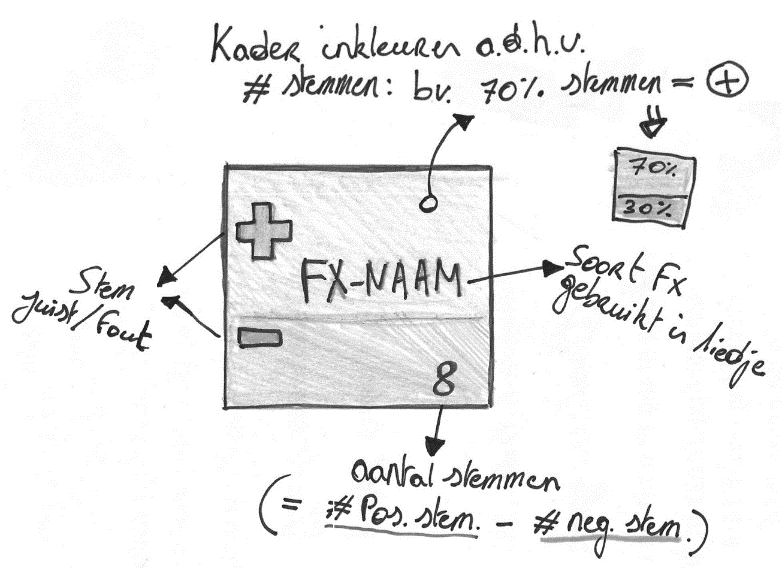 Kader inkleuren a.d.h.v.
# stemmen: bv. 70% stemmen = +
70%
30%
+
FX-NAAM
-
8
Stem
juist/fout
Soort FX
gebruikt in liedje
aantal stemmen
(= # Pos. stem. - # neg. stem.)